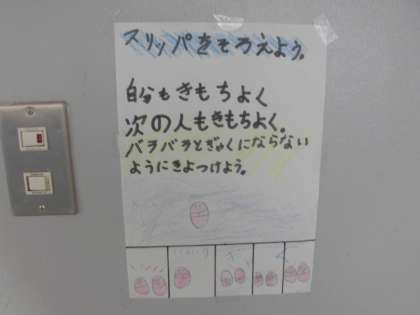 スリッパをそろえよう。
自分もきもちよく
次の人もきもちよく。
バラバラとぎゃくにならない
ようにきよつけよう。